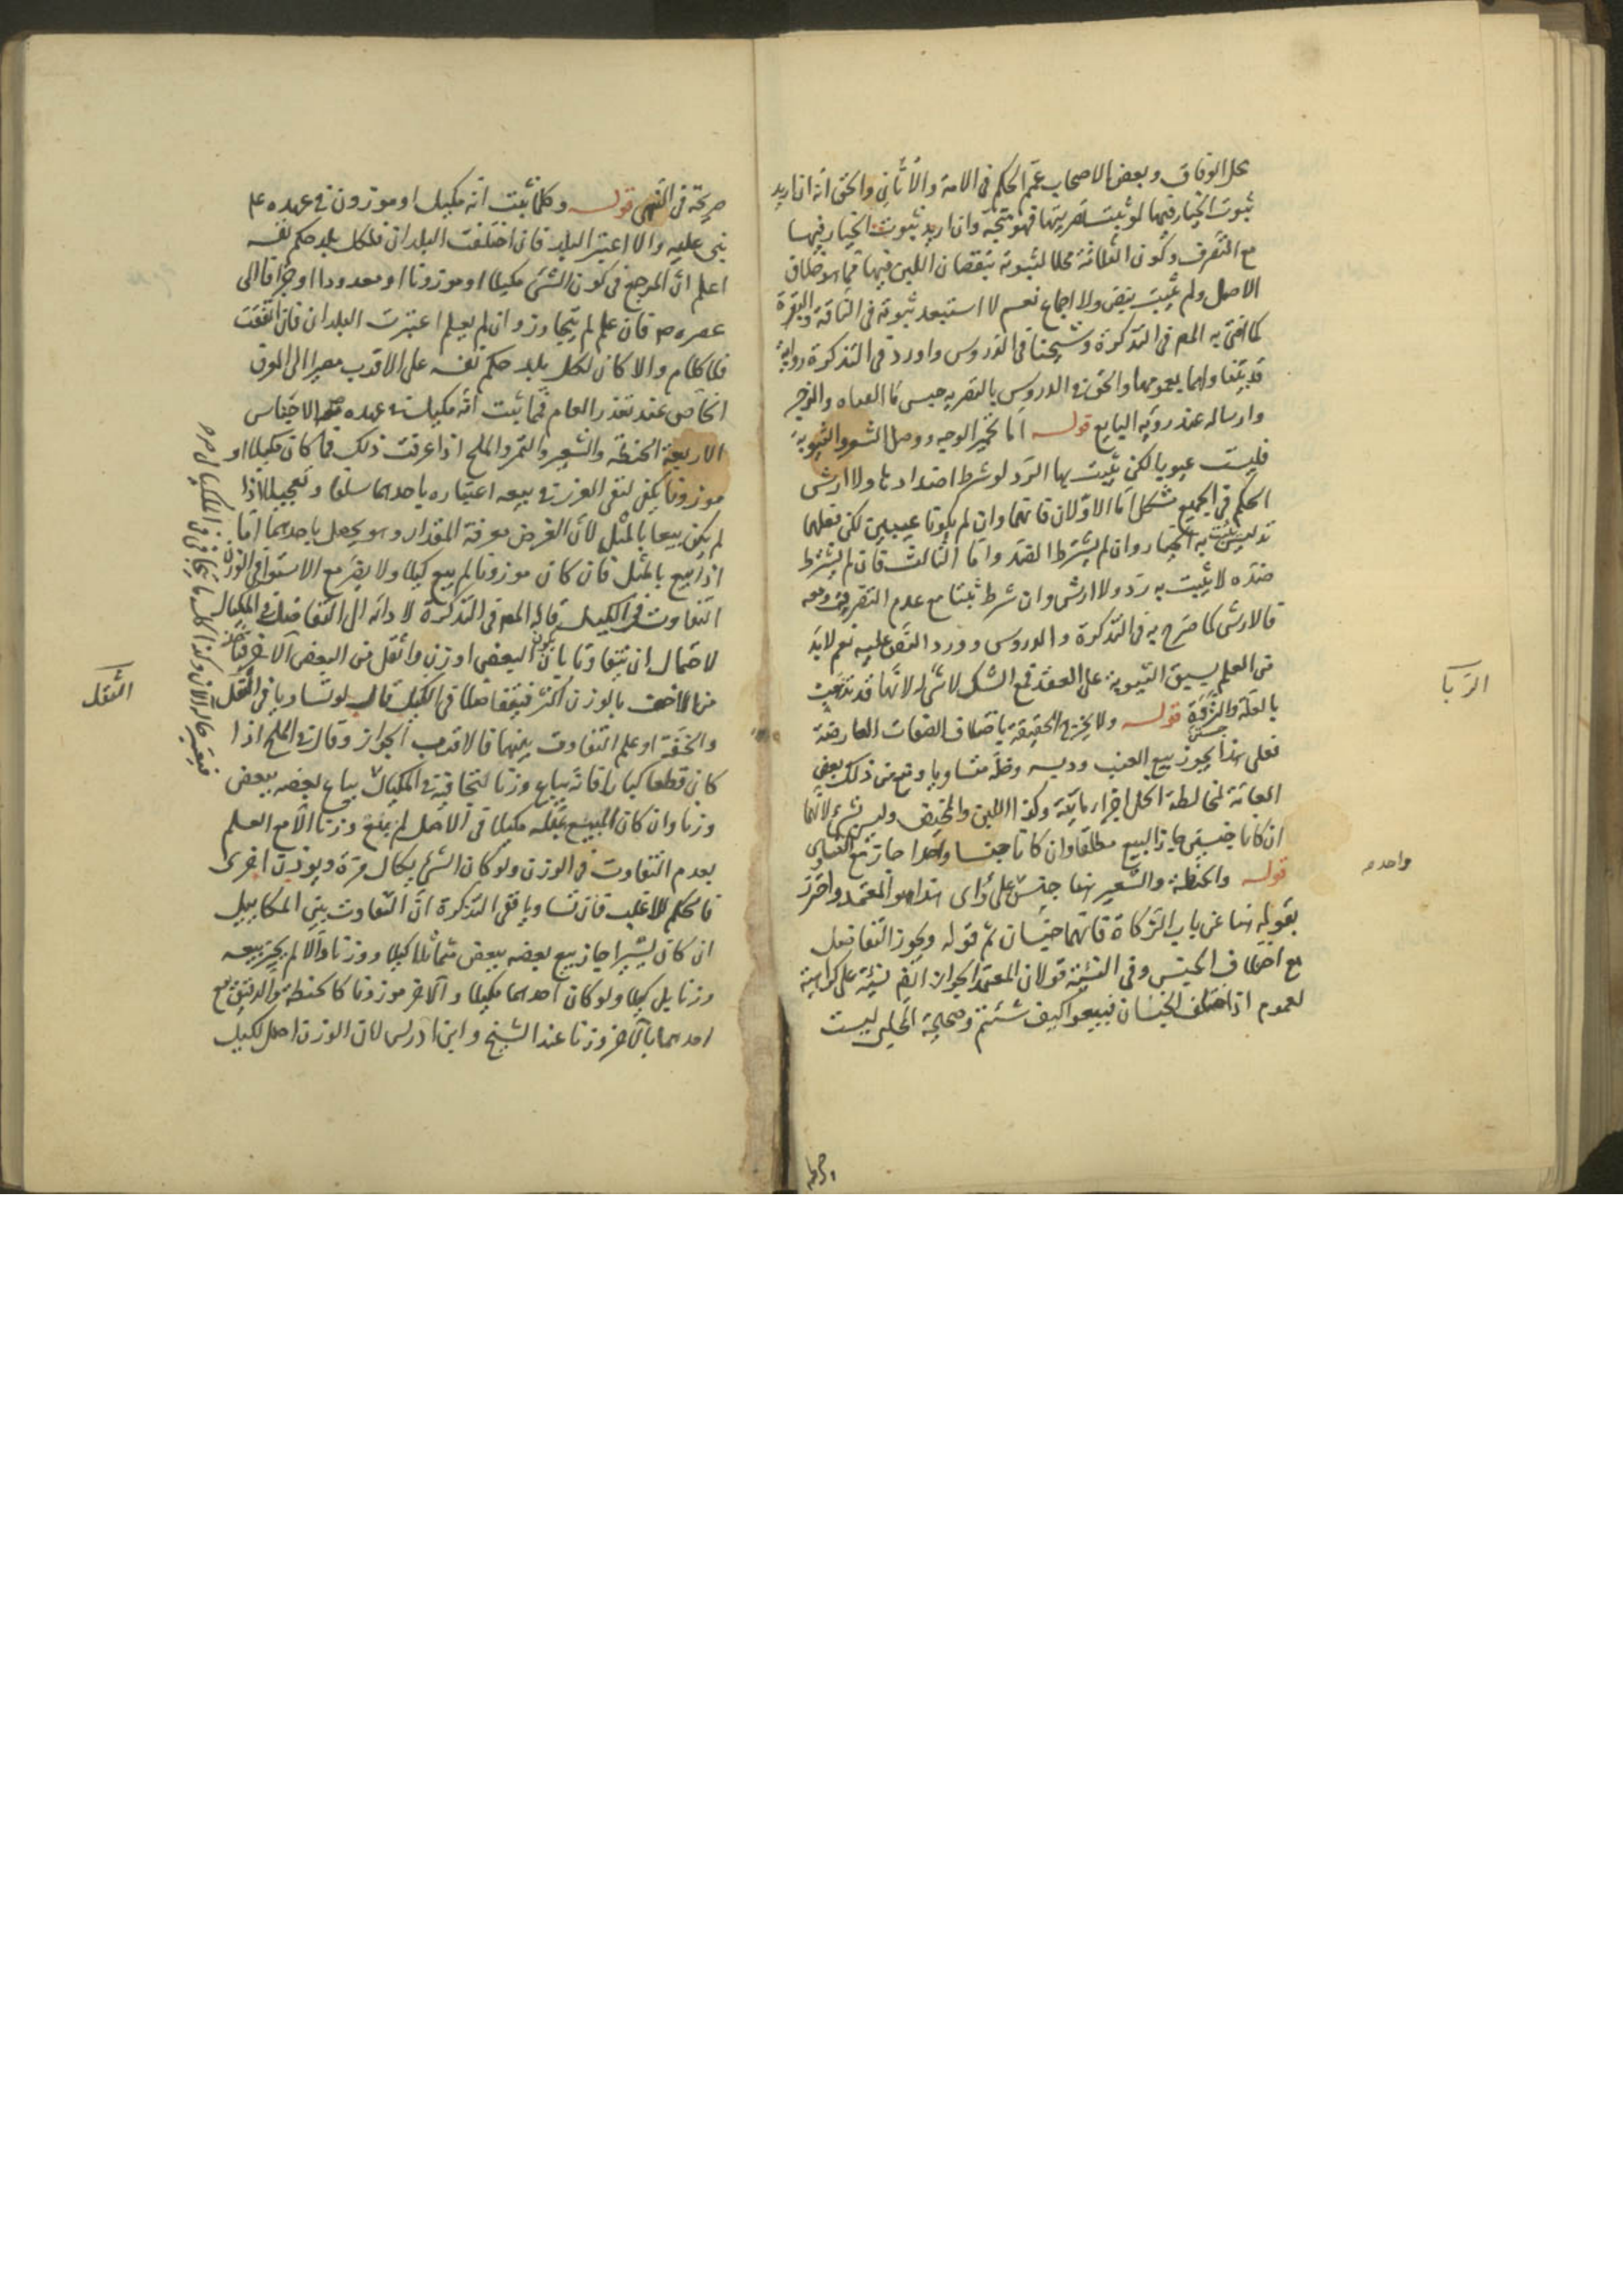 محل الوفاق وبعض الاصحاب عمّم الحكم فى الامة والأتان والحق انه ان اريد
ثبوت الخيار فيها لو ثبت تصريتها فهو متجه وان اريد ثبوت الخيار فيها
مع التصرف وكون الثلاثة محلا لثبوته بنقصان اللبن فيها فما هو خلاف
الاصل ولم يثبت بنص ولا اجماع نعم لا استبعد ثبوته فى الناقة والبقرة
كما افتى به المص فى التذكرة وشيخنا فى الدروس واورد فى التذكرة رواية
قد يتناولهما بعمومها والحق فى الدروس بالتصرية حبس ماء القناه والرحى
وارساله عند رؤية البايع قوله اما تحمير الوجه ووصل الشعر والثيوبة
فليست عيوبا لكن يثبت بها الرد لو شرط اضدادها ولا ارش
الحكم فى الجميع مشكل اما الاولان فانهما وان لم يكونا عيبين لكن فعلهما
تدليس يثبت به الخيار وان لم يشترط الضد واما الثالث فان لم يشترط
ضده لا يثبت به رد ولا ارش وان شرط ثبتا مع عدم التصرف ومعه
فالارش كما صرح به فى التذكرة والدروس وورد النص عليه نعم لابد
من العلم بسبق الثيوبة على العقد فمع الشك لا شىء لانها قد تذهب
بالعلة والنزوة قوله ولا يخرج الحقيقة باختلاف الصفات العارضة
فعلى هذا يجوز بيع العنب ودبسه وخله متساويا ومنع من ذلك بعض
العامة لمخالطة الخل اجزاء مائية وكذا اللبن والمخيض وليس بشىء لانهما
ان كانا جنسين جاز البيع مطلقا وان كانا جنسا واحدا جاز مع التساوى
قوله والحنطة والشعير هنا جنس على رأى هذا هو المعتمد واحترز
بقوله هنا عن باب الزكاة فانهما جنسان ثم قوله ويجوز التفاضل
مع اختلاف الجنس وفى النسيئة قولان المعتمد الجواز ايضم نسيئة على كراهية
لعموم اذا اختلف الجنسان فبيعوا كيف شئتم وصحيحة الحلبى ليست
الربا
واحدم
صريحة فى النهى قوله وكلما ثبت انه مكيل او موزون فى عهده ع م
بنى عليه والا اعتبر البلد فان اختلفت البلدان فلكل بلد حكم نفسه
اعلم ان المرجع فى كون الشىء مكيلا او موزونا او معدودا او جزافا الى
عصره ص فان علم لم يتجاوز وان لم يعلم اعتبرت البلدان فان اتفقت
فلا كلام والا كان لكل بلد حكم نفسه على الاقرب مصيرا الى العرف
الخاص عند تعذر العام فما ثبت انه مكيل فى عهده ص الاجناس
الاربعة الحنطة والشعير والتمر والملح اذا عرفت ذلك فما كان مكيلا او
موزونا يكفى لنفى الغرر فى بيعه اعتباره باحدهما سلفا وتعجيلا اذا
لم يكن بيعا بالمثل لان الغرض معرفة المقدار وهو يحصل باحدهما اما
اذا بيع بالمثل فان كان موزونا لم يبع كيلا ولا يضر مع الاستوا فى الوزن
التفاوت فى الكيل قاله المص فى التذكرة لادائه الى التفاضل فى المكيال
لاحتمال ان يتفاوتا بان يكون البعض اوزن واثقل من البعض الآخر
من الاخف بالوزن اكثر فيتفاضلا فى الكيل قال لو تساويا فى الثقل
والخفة او علم التفاوت بينهما فالاقرب الجواز وقال فى الملح اذا
كان قطعا كبارا فانه يباع وزنا لتجافيه فى المكيال يباع بعضه ببعض
وزنا وان كان المبيع بمثله مكيلا فى الاصل لم يبع وزنا الا مع العلم
بعدم التفاوت فى الوزن ولو كان الشىء يكال مرة ويوزن اخرى
فالحكم للاغلب فان تساويا ففى التذكرة ان التفاوت بين المكاييل
ان كان يسيرا جاز بيع بعضه ببعض متماثلا كيلا ووزنا والا لم يجز بيعه
وزنا بل كيلا ولو كان احدهما مكيلا والآخر موزونا كالحنطة والدقيق بيع
احدهما بالآخر وزنا عند الشيخ وابن ادريس لان الوزن اصل لكيل
الثقل